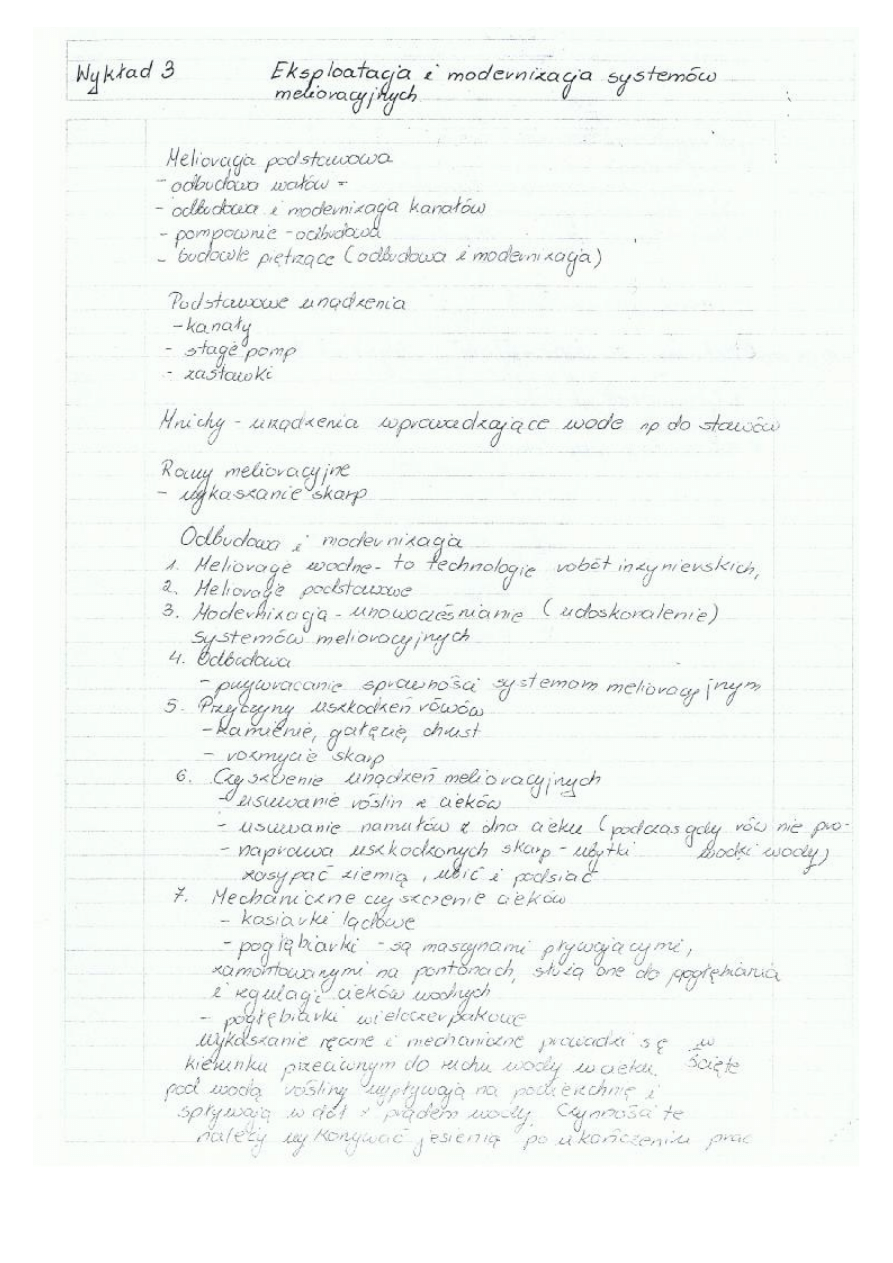 Wykład 3 Eksploatacja i modernizacja systemów
melioracyjnych
Melioracja podstawowa
- odbudowa wałów -
- odbudowa i modernizacja kanałów
- pompownie - odbudowa
- budowle piętrzące (odbudowa i modernizacja)
Podstawowe urządzenia
- kanały
- stacje pomp
- zastawki
Mnichy - urządzenia wprowadzające wode np do stawów
Rowy melioracyjne
- wykaszanie skarp
Odbudowa i modernizacja
1. Melioracje wodne - to technologie robót inżynierskich,
2. Melioracje podstawowe
3. Modernizacja - unowocześnianie (udoskonalenie)
systemów melioracyjnych
4. Odbudowa
- przywracanie sprawności systemom melioracyjnym
5. Przyczyny uszkodzeń rowów
- kamienie, gałęzie, chrust
- rozmycie skarp
6. Czyszczenie urządzeń melioracyjnych
- usuwanie roślin z cieków
- usuwanie namułów z dna cieku (podczas gdy rów nie pro-
- naprawa uszkodzonych skarp - ubytki wadzi wody)
zasypać ziemią, ubić i podsiać
7. Mechaniczne czyszczenie cieków
- kosiarki lądowe
- pogłębiarki - są maszynami pływającymi,
zamontowanymi na pontonach, służą one do pogłębiania
i regulacji cieków wodnych
- pogłębiarki wieloczerpakowe
Wykaszanie ręczne i mechaniczne prowadzi się w
kierunku przeciwnym do ruchu wody w cieku. Ścięte
pod wodą rośliny wypływają na powierzchnię i
spływają w dół z prądem wody. Czynności te
należy wykonywać jesienią po ukończeniu prac